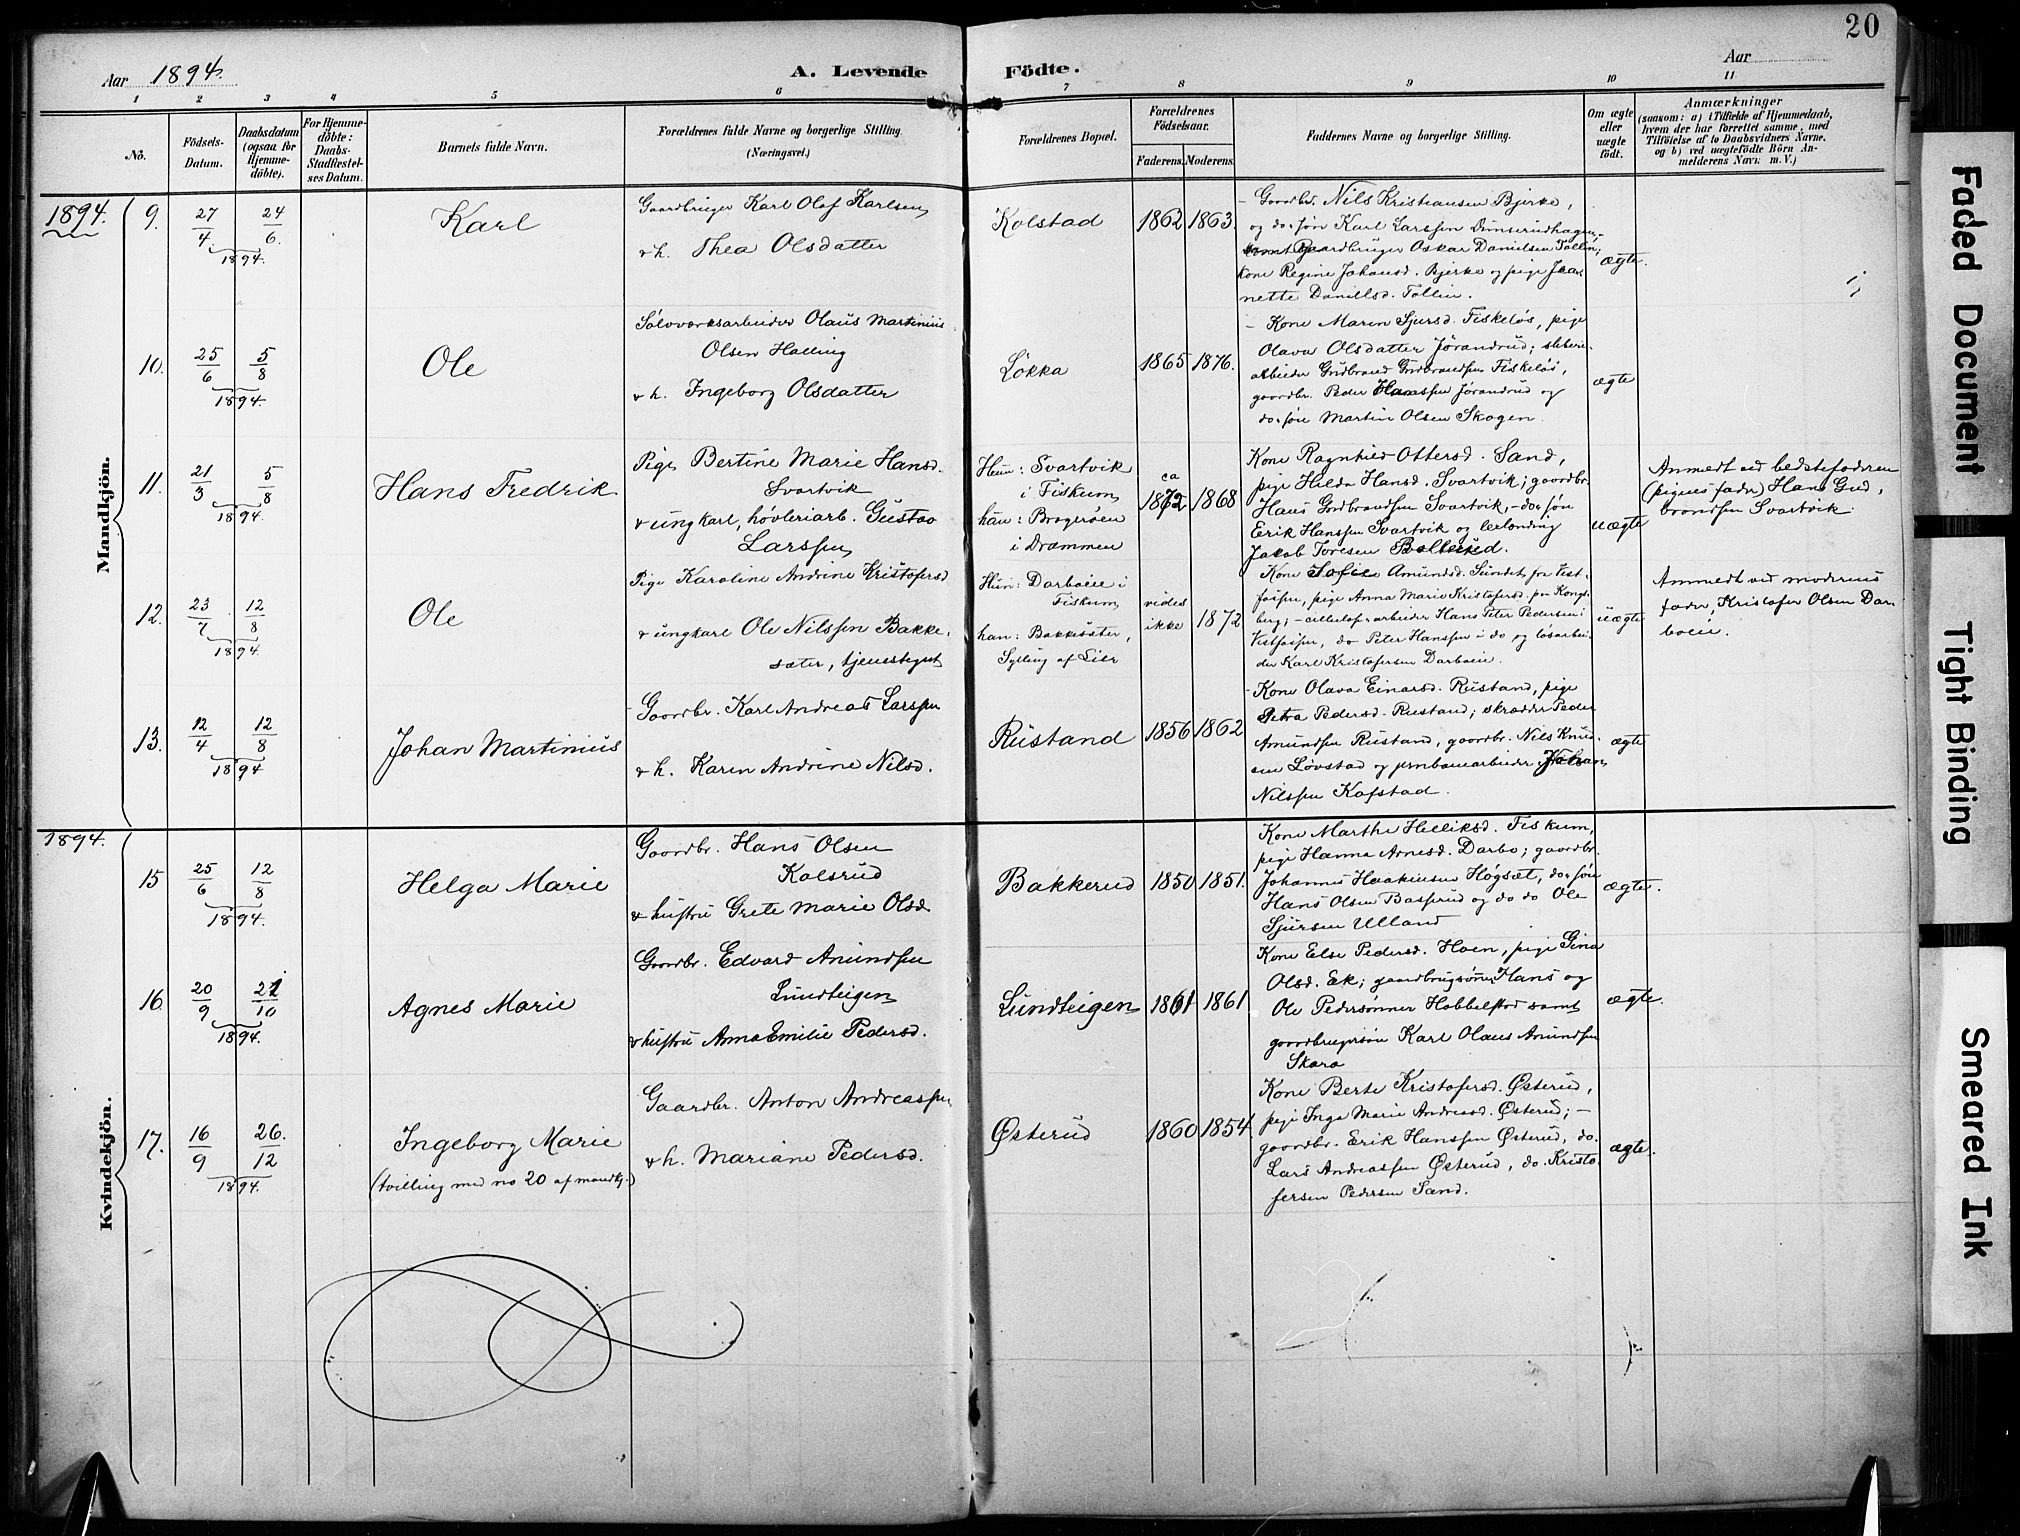 20
Aar 1894.
A. Levende Födte.
Aar
1 2 3 4 5 6 7 8 9 10 11
No.
Födsels-Datum.
Daabsdatum (ogsaa for Hjemme-döbte).
For Hjemme-döbte: Daabs-Stadfæstel-ses Datum.
Barnets fulde Navn.
Forældrenes fulde Navne og borgerlige Stilling. (Næringsvei.)
Forældrenes Bopæl.
Forældrenes Födselsaar.
Faderens. Moderens.
Faddernes Navne og borgerlige Stilling.
Om ægte eller uægte födt.
Anmærkninger
(saasom: a) i Tilfælde af Hjemmedaab,
hvem der har forrettet samme, med
Tilföielse af to Daabsvidners Navne.
og b) ved uægtefödte Börn An-
melderens Navn m. V.)
Mandkjön.
1894.
9. 27/4 24/6 1894.
Karl
Gaardbruger Karl Olaf Karlsen
& h. Thea Olsdatter
Kolstad
1862 1863.
Gaardbr. Nils Kristiansen Bjerke,
og do. søn Karl Larssen
Gaardbruger Oskar Danielsen Tollin,
kone Regine Johansd. Bjerke og pige Jea-
nette Daniels d. Tollin.
ægte.
10. 25/6 5/8 1894.
Ole
Sølvværksarbeider Olaus Martinius
Olsen Halling
& h. Ingeborg Olsdatter
Løkka
1865 1876.
- Kone Maren Sjursd. Fiskeløs, pige
Olava Olsdatter Jørandrud; sliberi-
arbeider Gudbrand Gudbrandsen Fiskeløs,
gaardbr. Peder Hanssen Jørandrud og
do. søn Martin Olsen Skogen.
ægte
11. 21/3 5/8 1894.
Hans Fredrik
Pige Bertine Marie Hansd.
Svartvik
& ungkarl, høvleriarb. Gustav
Larssen
Hun: Svartvik
i Fiskum,
han: Bragerøen
i Drammen
ca 1872 1868
Kone Ragnhild Ottersd. Sand,
pige Helda Hansd. Svartvik; gaardbr.
Hans Gudbrandsen Svartvik, - do. søn
Erik Hanssen Svartvik og lerlending
Jakob Toresen Bollerud.
uægte
Anmeldt ved bedstefaderen
(pigens fader) Hans Gud-
brandsen Svartvik.
12. 23/7 12/8 1894.
Ole
Pige Karoline Andrine Kristofersd.
& ungkarl Ole Nilssen Bakke-
sæter, tjenestegut
Hun: Darboeie i
Fiskum,
han: Bakkesæter,
Sylling af Lier
vides ikke 1872
Kone Sofie Amundsd. Sundet fra Vest-
fossen, pige Anna Marie Kristofersd. paa Kongs-
berg; - cellulosearbeider Hans Peter Pedersen i
Vestfossen, do Peter Hanssen i do og løsarbei-
der Karl Kristofersen Darboeie.
uægte
Anmeldt ved moderens
fader, Kristofer Olsen Dar-
boeie.
13. 12/4 12/8 1894
Johan Martinius
Gaardbr. Karl Andreas Larssen
& h. Karen Andrine Nilsd.
Rustand
1856 1862
- Kone Olava Einarsd. Rustand, pige
Petra Pedersd. Rustand; skrædder Peder
Amundsen Rustand, gaardbr. Nils Knud-
sen Løvstad og jernbanearbeider Johan
Nilssen Kofstad.
ægte
Kvindekjön.
1894.
15 25/6 12/8 1894.
Helga Marie
Gaardbr. Hans Olsen
Kolsrud
& hustru Grete Marie Olsd.
Bakkerud
1850 1851.
Kone Marthe Helliksd. Fiskum,
pige Hanna Arnesd. Darbo; gaardbr.
Johannes Haakensen Høgsæt, do. søn
Hans Olsen Basserud og do do Ole
Sjursen Ulland
ægte.
16 20/9 21/10 1894.
Agnes Marie
Gaardbr. Edvard Amundsen
Lundteigen
& hustru Anna Emilie Pedersd.
Lundteigen
1861 1861
Kone Else Pedersd. Hoen, pige Gina
Olsd. Ek; gaardbrugsønner Hans og
Ole Pedersønner Hobbelstad samt
gaardbrugersøn Karl Olaus Amundsen
Skara
ægte.
17. 16/9 26./12 1894.
Ingeborg Marie
(tvilling med no 20 af mandkj.)
Gaardbr. Anton Andreassen
& h. Mariane Pedersd.
Østerud
1860 1854
Kone Berte Kristofersd. Østerud,
pige Inga Marie Andreasd. Østerud; -
gaardbr. Erik Hanssen Østerud, do.
Lars Andreassen Østerud, do. Kristo-
fersen Pedersen Sand.
ægte.
Faded Document
Tight Binding
Smeared Ink